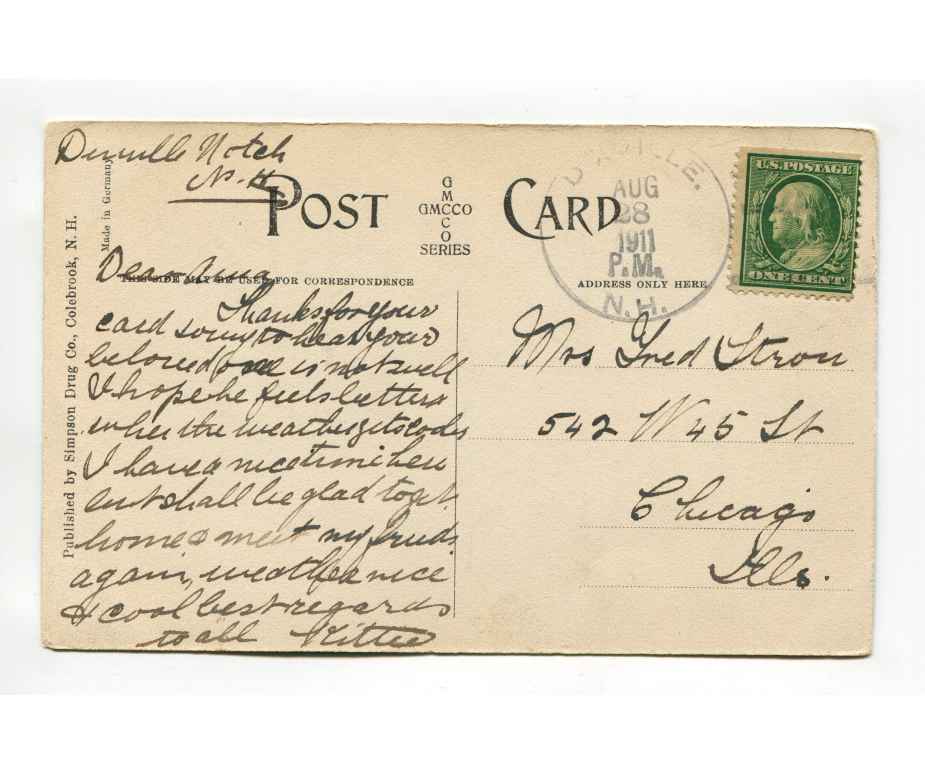 Notch
N.H.
POST CARD
GMCCO
GMCCO
SERIES
D LLE.
AUG
28
1911
P.M.
N.H.
U.S. POSTAGE
ONE CENT
THIS SIDE MAY BE USED FOR CORRESPONDENCE
ADDRESS ONLY HERE
Published by Simpson Drug Co., Colebrook, N. H.
Made in Germany
Dear Anna
Thanks for your
card sorry to hear your
beloved one is not well
I hope he feels better
when the weather gets
I have a nice time here
but shall be glad to get
home & meet my
again, weather nice
& cool best regards
to all Kittie
Mrs Fred
542 W 45 St
Chicago
Ills.